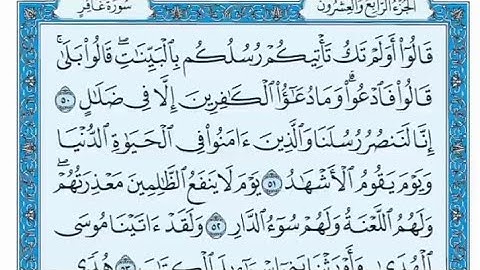 الجزء الرابع والعشرون
سورة غافر
قَالُوٓاْ أَوَلَمْ تَكُ تَأْتِيكُمْ رُسُلُكُم بِٱلْبَيِّنَٰتِ ۖ قَالُواْ بَلَىٰ ۚ
قَالُواْ فَٱدْعُواْ ۗ وَمَا دُعَٰٓؤُاْ ٱلْكَٰفِرِينَ إِلَّا فِى ضَلَٰلٍ ٥٠
إِنَّا لَنَنصُرُ رُسُلَنَا وَٱلَّذِينَ ءَامَنُواْ فِى ٱلْحَيَوٰةِ ٱلدُّنْيَا
وَيَوْمَ يَقُومُ ٱلْأَشْهَٰدُ ٥١ يَوْمَ لَا يَنفَعُ ٱلظَّٰلِمِينَ مَعْذِرَتُهُمْ ۖ
وَلَهُمُ ٱللَّعْنَةُ وَلَهُمْ سُوٓءُ ٱلدَّارِ ٥٢ وَلَقَدْ ءَاتَيْنَا مُوسَى
ٱلْهُدَىٰ وَأَوْرَثْنَا بَنِىٓ إِسْرَٰٓءِيلَ ٱلْكِتَٰبَ ٥٣ هُدًى